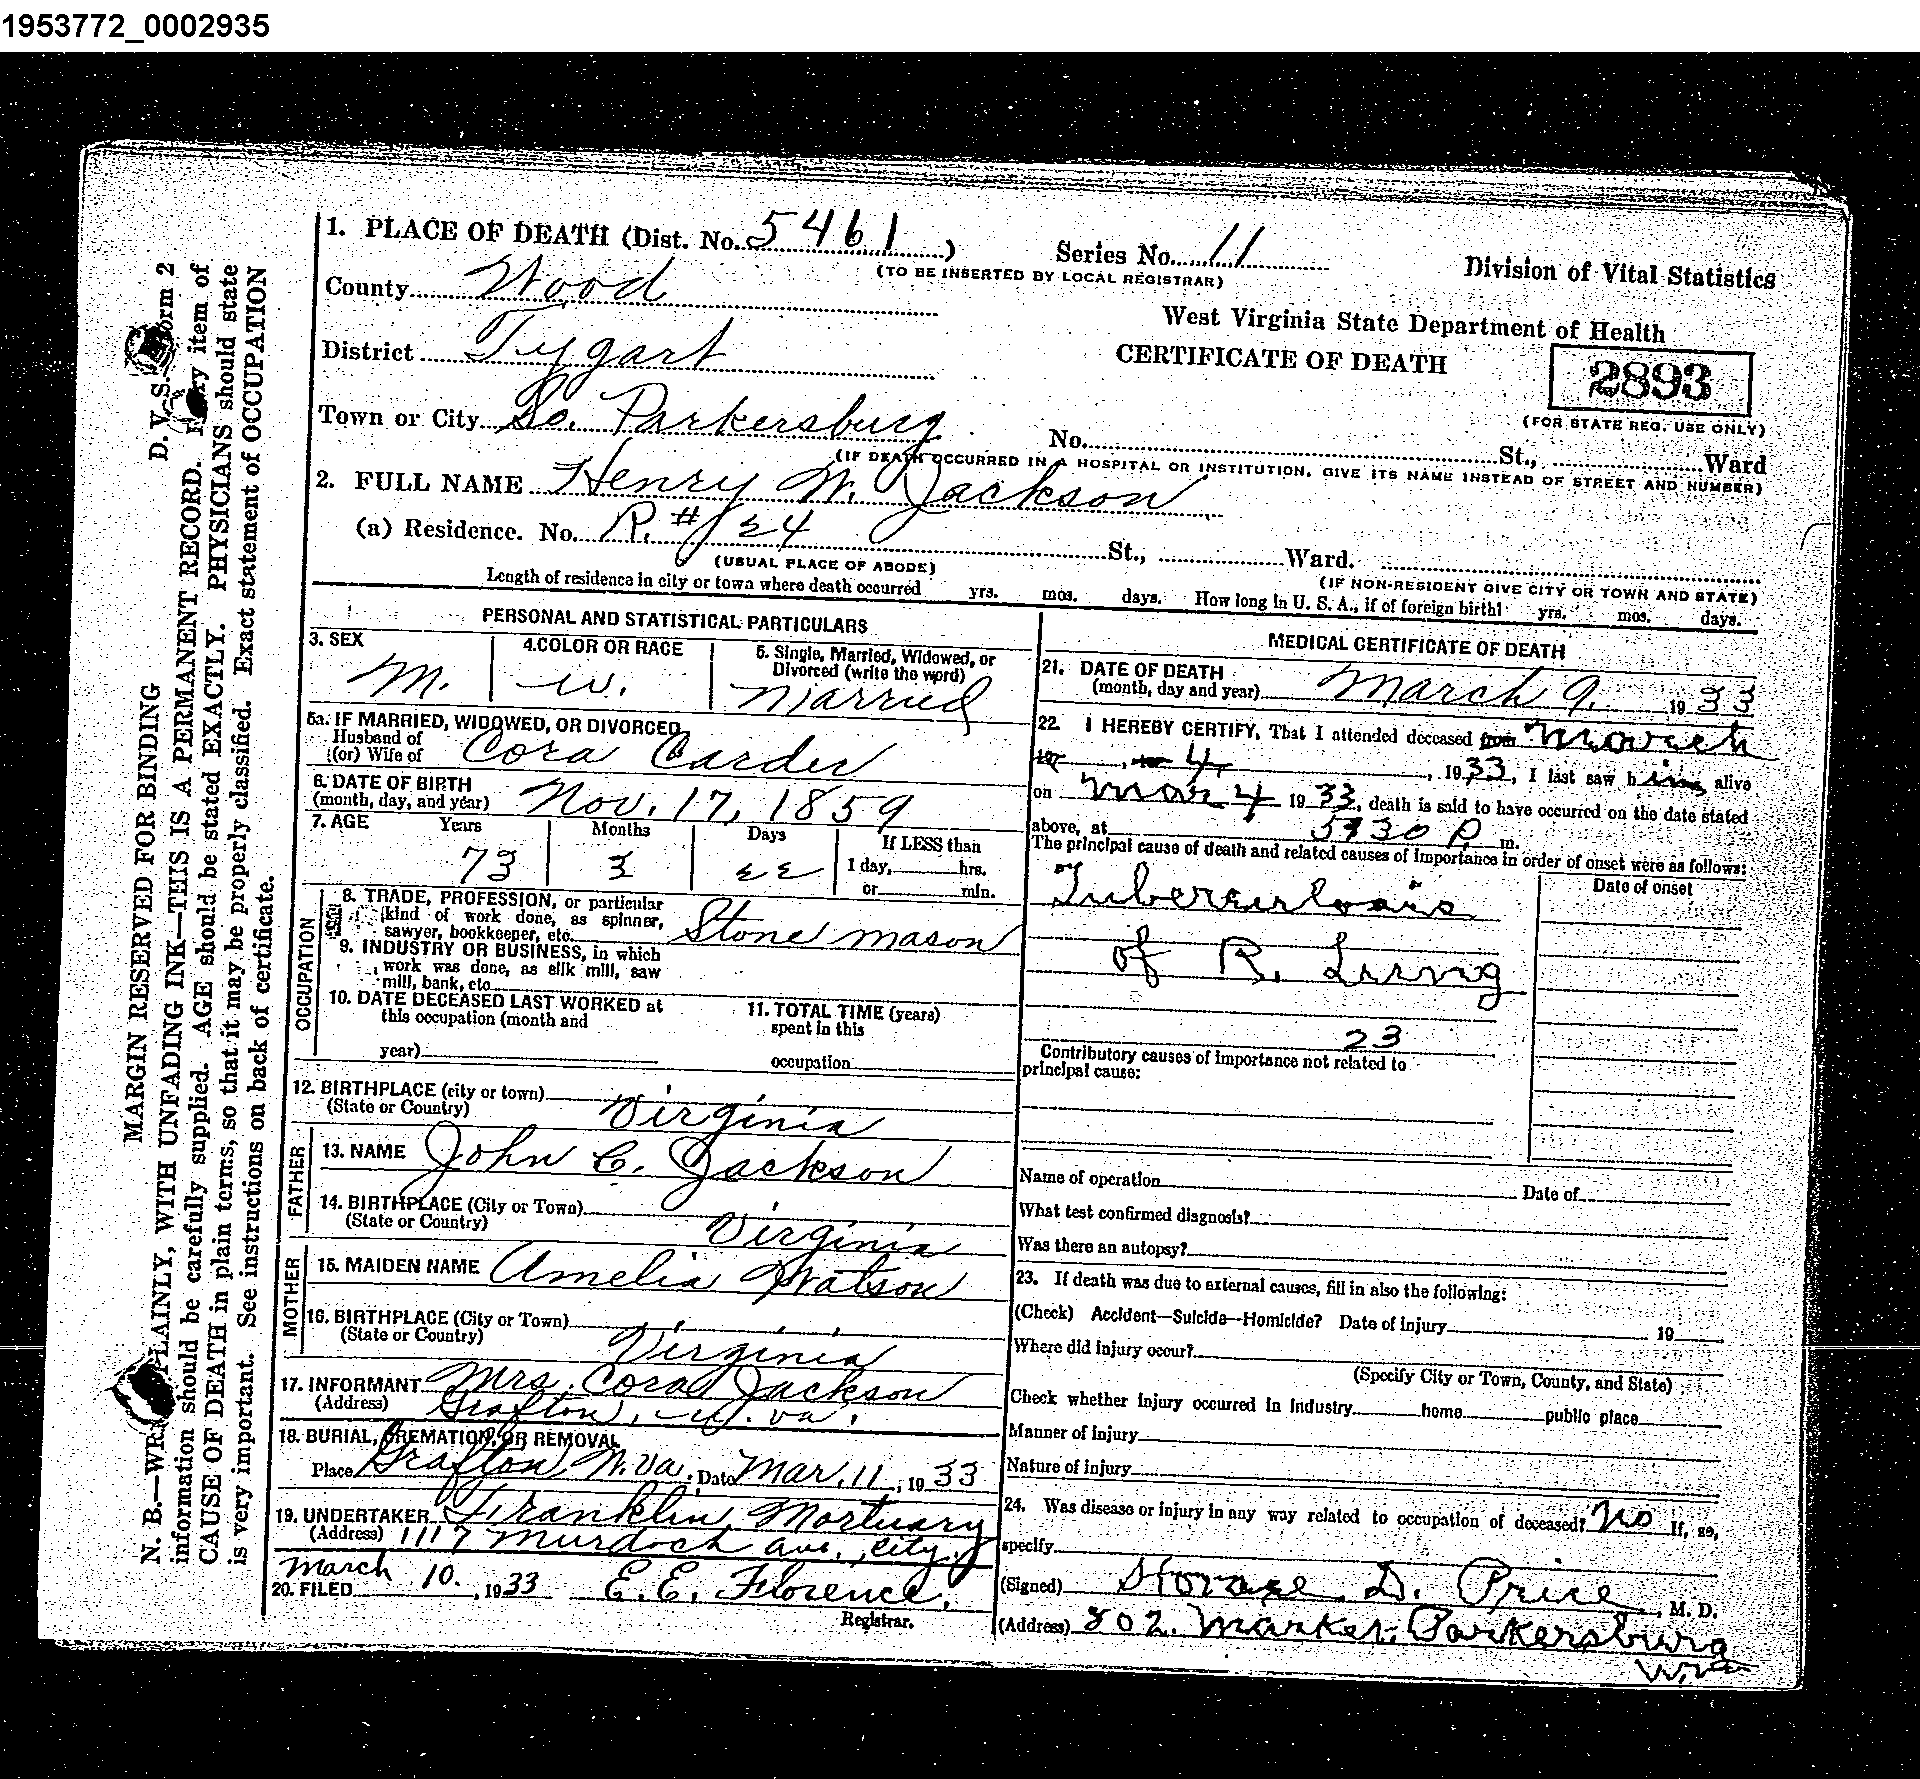 1953772_0002935
1. PLACE OF DEATH (Dist. No. 5461)
Series No. 11
(TO BE INSERTED BY LOCAL REGISTRAR)
Division of Vital Statistics
County Wood
West Virginia State Department of Health
District Tygart
CERTIFICATE OF DEATH
2893
(FOR STATE REG. USE ONLY)
Town or City So. Parkersburg
No. St., Ward
(IF DEATH OCCURRED IN A HOSPITAL OR INSTITUTION, GIVE ITS NAME INSTEAD OF STREET AND NUMBER)
2. FULL NAME Henry W. Jackson
(a) Residence. No. R. # St., Ward.
(USUAL PLACE OF ABODE)
(IF NON-RESIDENT GIVE CITY OR TOWN AND STATE)
Length of residence in city or town where death occurred yrs. mos. days. How long in U. S. A., if of foreign birth? yrs. mos. days.
PERSONAL AND STATISTICAL PARTICULARS
3. SEX
M.
4. COLOR OR RACE
W.
5. Single, Married, Widowed, or
Divorced (write the word)
Married
5a. IF MARRIED, WIDOWED, OR DIVORCED
Husband of
(or) Wife of Cora Carder
6. DATE OF BIRTH
(month, day, and year) Nov. 17, 1859
7. AGE Years Months Days If LESS than
73 3 22 1 day, hrs.
or min.
OCCUPATION
8. TRADE, PROFESSION, or particular
kind of work done, as spinner,
sawyer, bookkeeper, etc. Stone mason
9. INDUSTRY OR BUSINESS, in which
work was done, as silk mill, saw
mill, bank, etc
10. DATE DECEASED LAST WORKED at
this occupation (month and
year)
11. TOTAL TIME (years)
spent in this
occupation
12. BIRTHPLACE (city or town)
(State or Country) Virginia
FATHER
13. NAME John C. Jackson
14. BIRTHPLACE (City or Town)
(State or Country) Virginia
MOTHER
15. MAIDEN NAME Amelia Watson
16. BIRTHPLACE (City or Town)
(State or Country) Virginia
17. INFORMANT Mrs. Cora Jackson
(Address) Grafton, W. Va.
18. BURIAL, CREMATION, OR REMOVAL
Place Grafton W. Va. Date Mar. 11, 1933
19. UNDERTAKER Franklin Mortuary
(Address) 1117 Murdoch ave. City
20. FILED March 10. , 1933 E. E. Florence.
Registrar.
MEDICAL CERTIFICATE OF DEATH
21. DATE OF DEATH
(month, day and year) March 9. 1933
22. I HEREBY CERTIFY, That I attended deceased from March
19 , to 4, , 1933, I last saw him alive
on Mar 4 1933, death is said to have occurred on the date stated
above, at 5:30 P. m.
The principal cause of death and related causes of importance in order of onset were as follows:
Date of onset
Tuberculosis
of R. Lung
23
Contributory causes of importance not related to
principal cause:
Name of operation Date of
What test confirmed diagnosis?
Was there an autopsy?
23. If death was due to external causes, fill in also the following:
(Check) Accident—Suicide—Homicide? Date of injury 19
Where did injury occur?
(Specify City or Town, County, and State)
Check whether injury occurred in industry home public place
Manner of injury
Nature of injury
24. Was disease or injury in any way related to occupation of deceased? No If, so,
specify
(Signed) D. Price, M. D.
(Address) 802 Market. Parkersburg
W. Va
MARGIN RESERVED FOR BINDING D. V. S. Form 2
N. B.—WRITE PLAINLY, WITH UNFADING INK—THIS IS A PERMANENT RECORD. Every item of
information should be carefully supplied. AGE should be stated EXACTLY. PHYSICIANS should state
CAUSE OF DEATH in plain terms, so that it may be properly classified. Exact statement of OCCUPATION
is very important. See instructions on back of certificate.